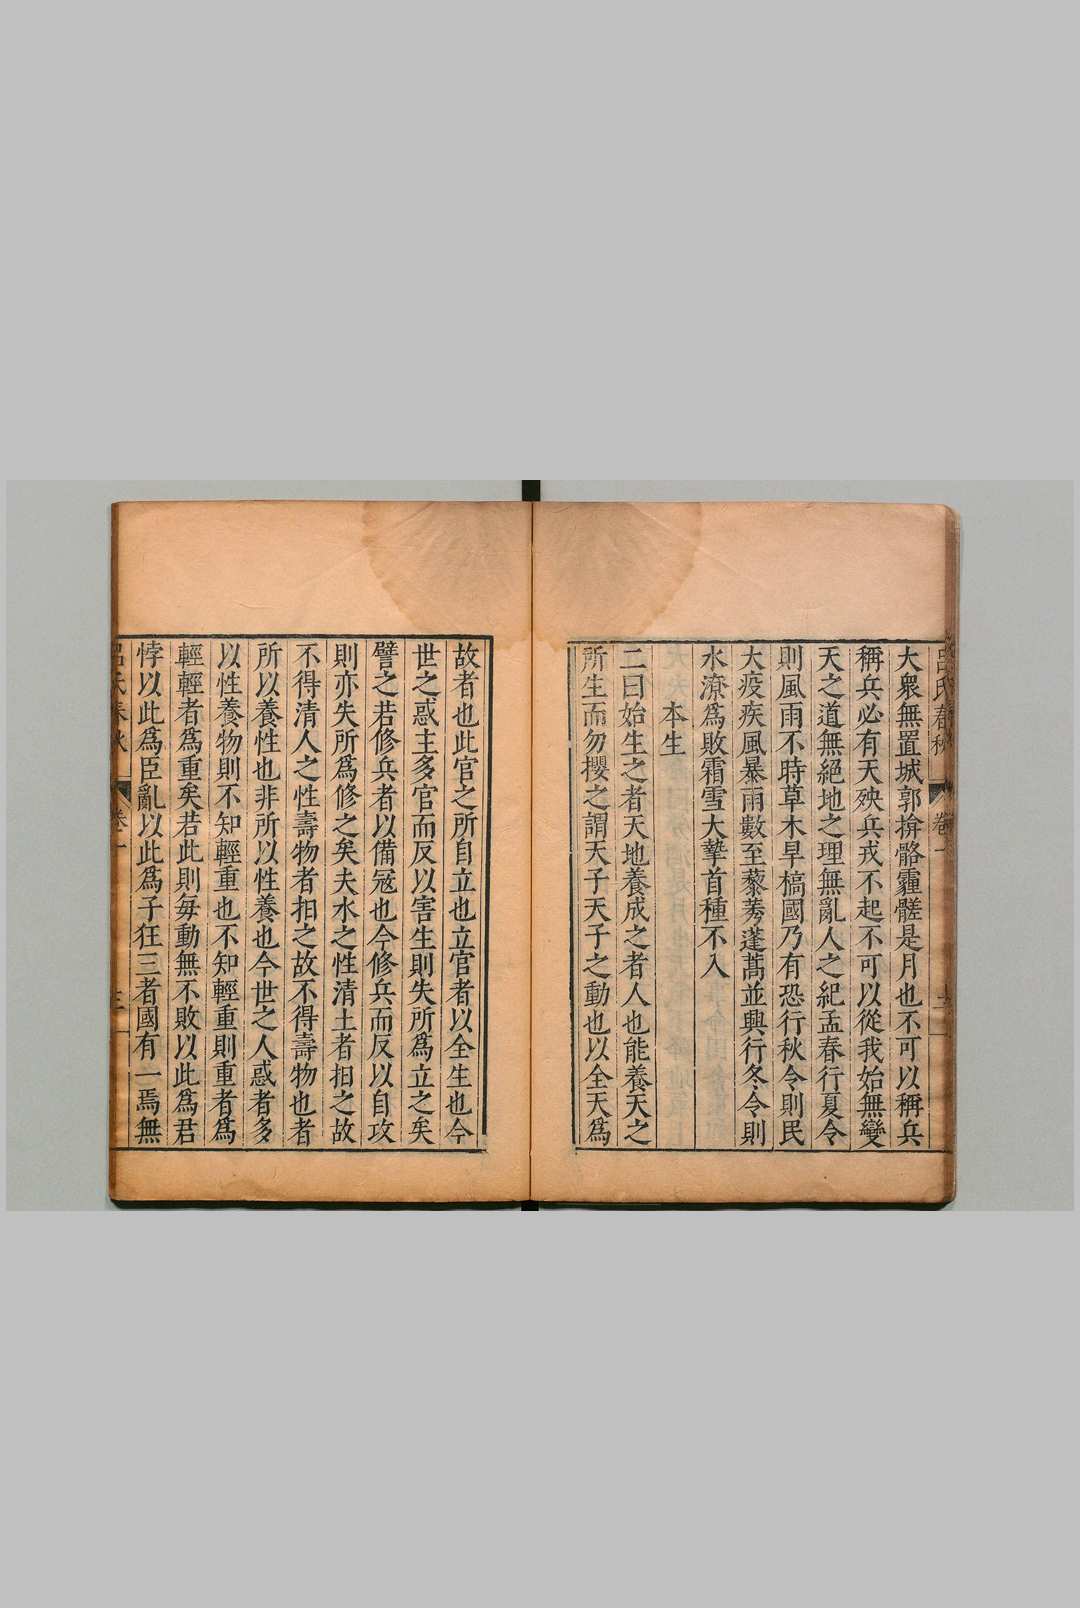 呂氏春秋 卷一
大衆無置城郭揜骼霾髊是月也不可以稱兵
稱兵必有天殃兵戎不起不可以從我始無變
天之道無絕地之理無亂人之紀孟春行夏令
則風雨不時草木旱槁國乃有恐行秋令則民
大疫疾風暴雨數至藜莠蓬蒿並興行冬令則
水潦爲敗霜雪大摯首種不入
本生
二曰始生之者天地養成之者人也能養天之
所生而勿攖之謂天子天子之動也以全天爲
故者也此官之所自立也立官者以全生也今
世之惑主多官而反以害生則失所爲立之矣
譬之若修兵者以備冦也今修兵而反以自攻
則亦失所爲修之矣夫水之性清土者抇之故
不得清人之性壽物者抇之故不得壽物也者
所以養性也非所以性養也今世之人惑者多
以性養物則不知輕重也不知輕重則重者爲
輕輕者爲重矣若此則每動無不敗以此爲君
悖以此爲臣亂以此爲子狂三者國有一焉無
呂氏春秋 卷一 三